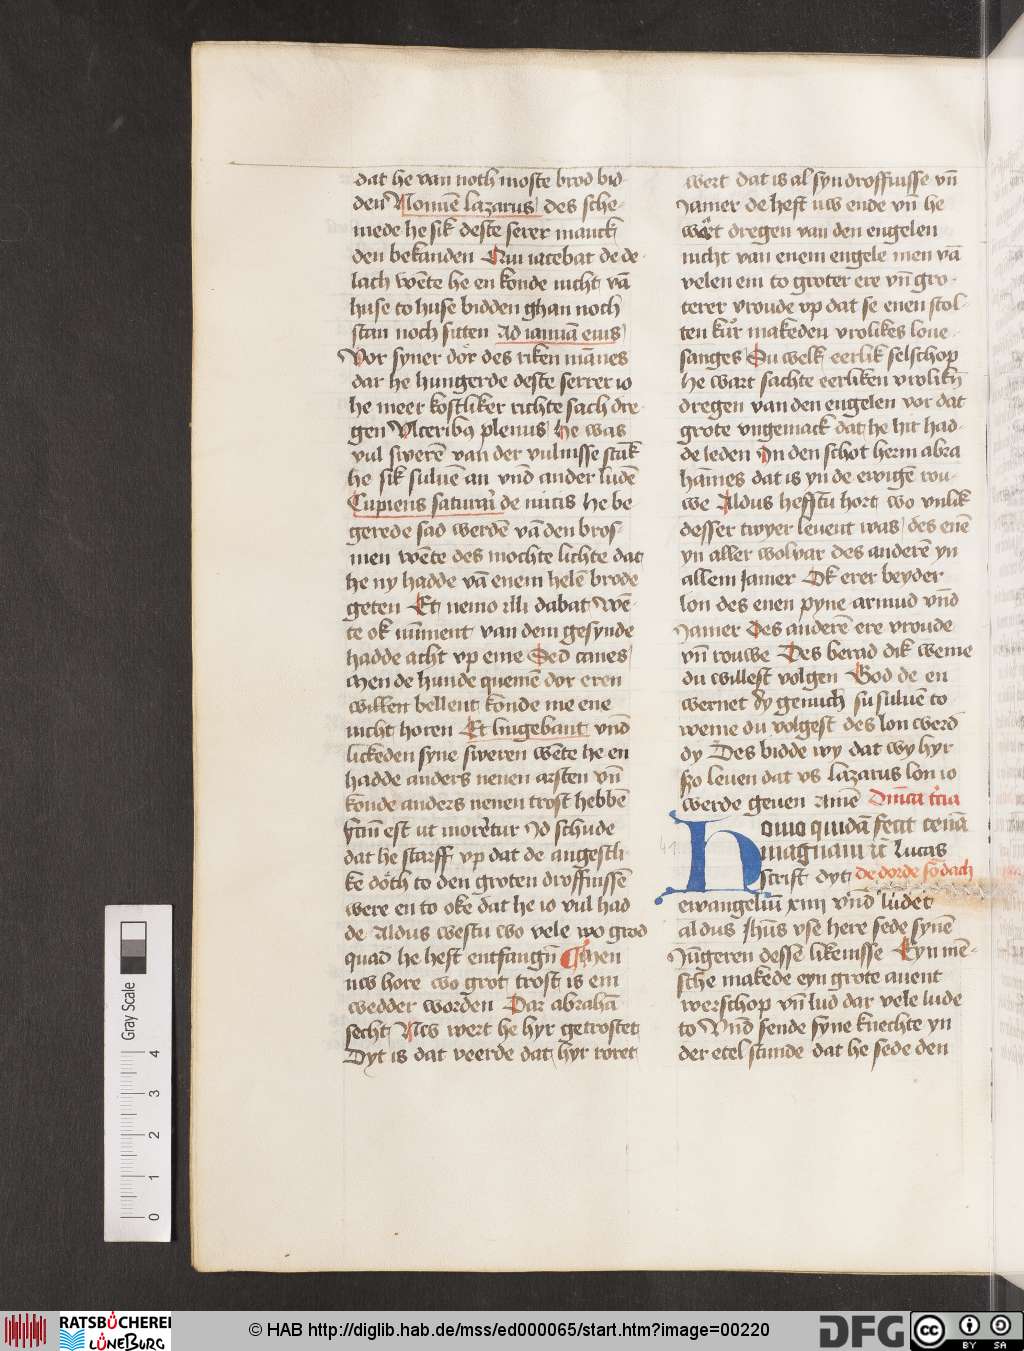 dat he van noth moste brod bid-
den Nomine lazarus des sche-
mede he sik deste serer manck
den bekanden Qui iacebat de de
lach wēte he en konde nicht vā
huse to huse bidden ghan noch
stan noch sitten Ad ianuā eius
Vor syner dör des riken mānes
dar he hungerde deste serrer io
he meer kostliker richte sach dre-
gen Vlceribꝯ plenus He was
vul swerē van der vulnisse stāk
he sik suluē an vnd ander ludē
Cupiens saturari de micis He be
gerede sad werdē vā den bros-
men wēte des mochte lichte dat
he ny hadde vā enem helē brode
geten Et nemo illi dabat Wē-
te ok nūment van dem gesynde
hadde acht vp eme Sed canes
Men de hunde quemē dor eren
willen bellent konde me ene
nicht horen Et lingebant vnd
lickeden syne sweren wēte he en
hadde anders nenen arsten vn̄
konde anders nenen trost hebbē
Fctm̄ est ut moreretur Id schude
dat he starff vp dat de angestli
ke döth to den groten droffnissē
were en to oke dat he io vul had
de Aldus westu wo vele wo grod
quad he heft entfangn̄ Men
nw hore wo grot trost is em
wedder worden Dar abrahā
secht Nw wert he hyr getrostet
Dyt is dat veerde dat hyr roret
wert dat is al syn droffnisse vn̄
Jamer de heft nw ende vn̄ he
wört dregen van den engelen
nicht van enem engele men vā
velen em to groter ere vn̄ gro-
terer vroude vp dat se enen stol-
ten kůr makeden vrolikes loue
sanges Su welk eerlik selschop
he wart sachte eerliken vrolikn̄
dregen van den engelen vor dat
grote vngemack dat he hir had-
de leden In den schot herm abra
hāmes dat is yn de ewigē rou-
we Aldus hefstu hort wo vnlik
desser twyer leuent was des enē
yn aller wolvar des anderē yn
allem Jamer Ok erer beyder
lon des enen pyne armud vn̄d
Jamer Des anderē ere vroude
vn̄ rouwe Des berad dik weme
du willest volgen God de en
wernet dy genuch su suluē to
weme du volgest des lon werd
dy Des bidde wy dat wy hyr
szo leuen dat vs lazarus lon io
werde geuen Amē Dn̄ica t͛cia
Homo quidā fecit cenā
magnam rc̄ Lucas
scrift dyt de dorde sō̄dach
ewangeliū xiiij vn̄d ludet
aldus Jhūs vse here sede synē
Jūgeren desse likenisse Eyn mē-
sche makede eyn grote auent
werschop vn̄ lud dar vele lude
to Vn̄d sende syne knechte yn
der etel stunde dat he sede den
41
Gray Scale
0 1 2 3 4
RATSBÜCHEREI
LÜNEBURG
© HAB http://diglib.hab.de/mss/ed000065/start.htm?image=00220
DFG
cc
BY SA